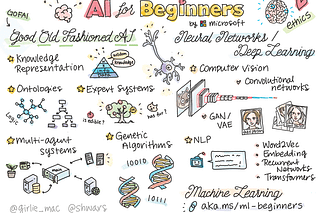 GOFAI
AI for Beginners
by microsoft
ethics
Good Old Fashioned AI
Knowledge
Representation
Knowledge
DATA
Ontologies
Expert Systems
Logic
is edible?
has fur?
Multi-agent
systems
Genetic
Algorithms
10010
01101
Neural Networks /
Deep Learning
Computer vision
Convolutional
networks
GAN/
VAE
NLP
Word2Vec
Embedding
Recurrent
Networks
Transformers
Machine Learning
aka.ms/ml-beginners
@girlie_mac @shwars